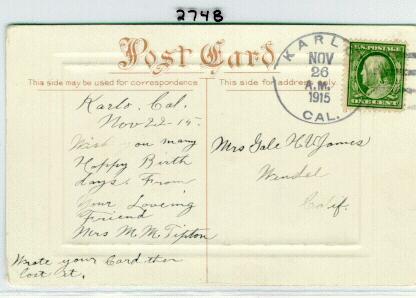 2748
Post Card
This side may be used for correspondence
This side for address only.
KARLO
NOV
26
A.M.
1915
CAL.
U.S. POSTAGE
ONE CENT
Karlo, Cal.
Nov 22-15.
Wish you many
Happy Birth
days. From
your Loveing
Friend
Mrs M.M. Tipton
Wrote your Card then
lost it.
Mrs Gale James
Wendel
Calif.